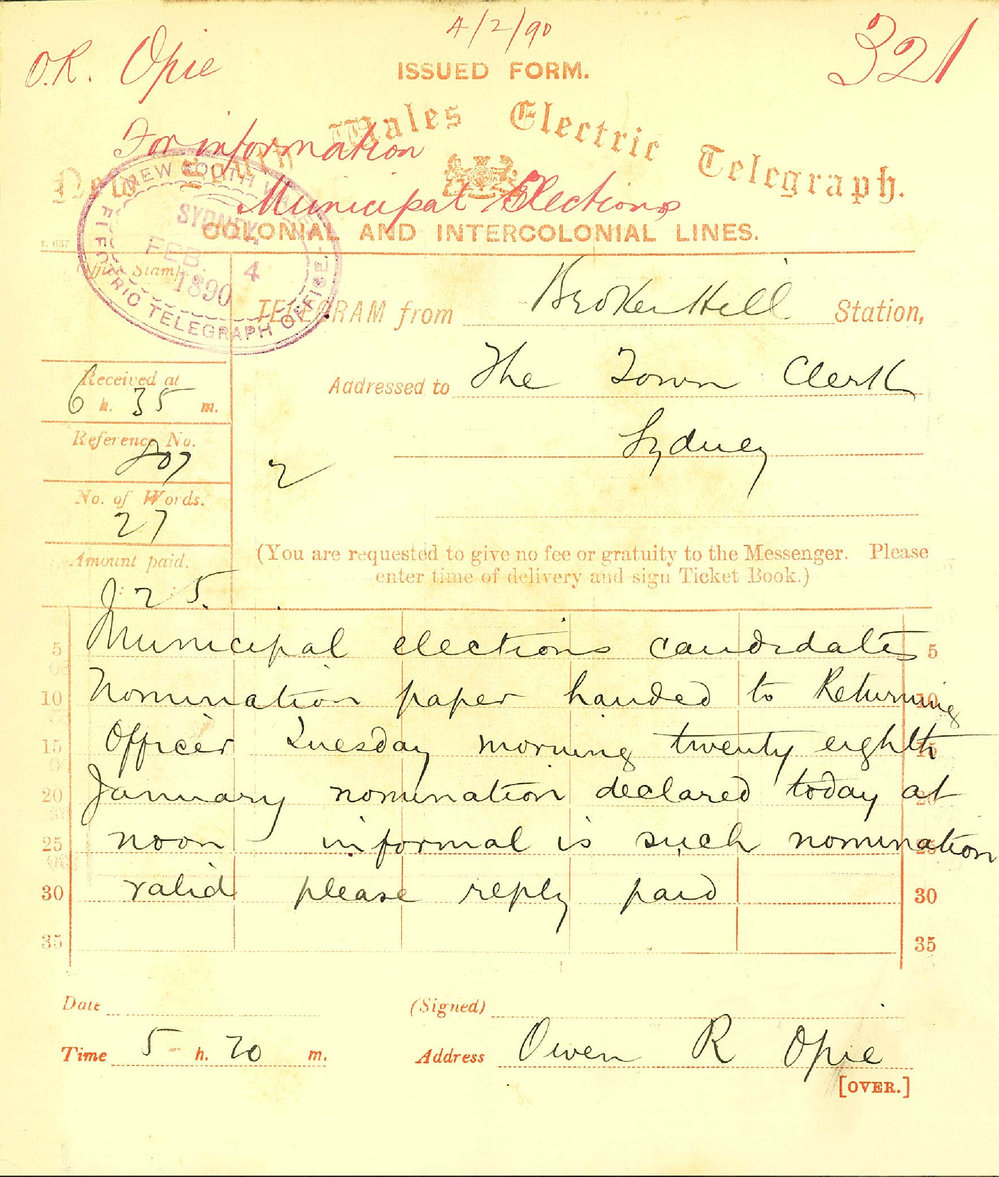 4/2/90
O.R. Opie
321
ISSUED FORM.
For information
Wales Electric Telegraph.
Municipal Elections
COLONIAL AND INTERCOLONIAL LINES.
NEW SOUTH WALES
SYDNEY.
FEB. 4
1890
ELECTRIC TELEGRAPH OFFICE.
Office Stamp
TELEGRAM from Broken Hill Station,
Received at
6 h. 35 m.
Addressed to The Town Clerk
Sydney
Reference No.
207
2
No. of Words.
27
Amount paid.
2.5.
(You are requested to give no fee or gratuity to the Messenger. Please
enter time of delivery and sign Ticket Book.)
5 Municipal elections candidates 5
10 Nomination paper handed to Returning 10
15 Officer Tuesday morning twenty eighth 15
20 January nomination declared today at 20
25 noon informal is such nomination 25
30 valid please reply paid 30
35 35
Date
(Signed)
Time 5 h. 20 m.
Address Owen R Opie
[OVER.]